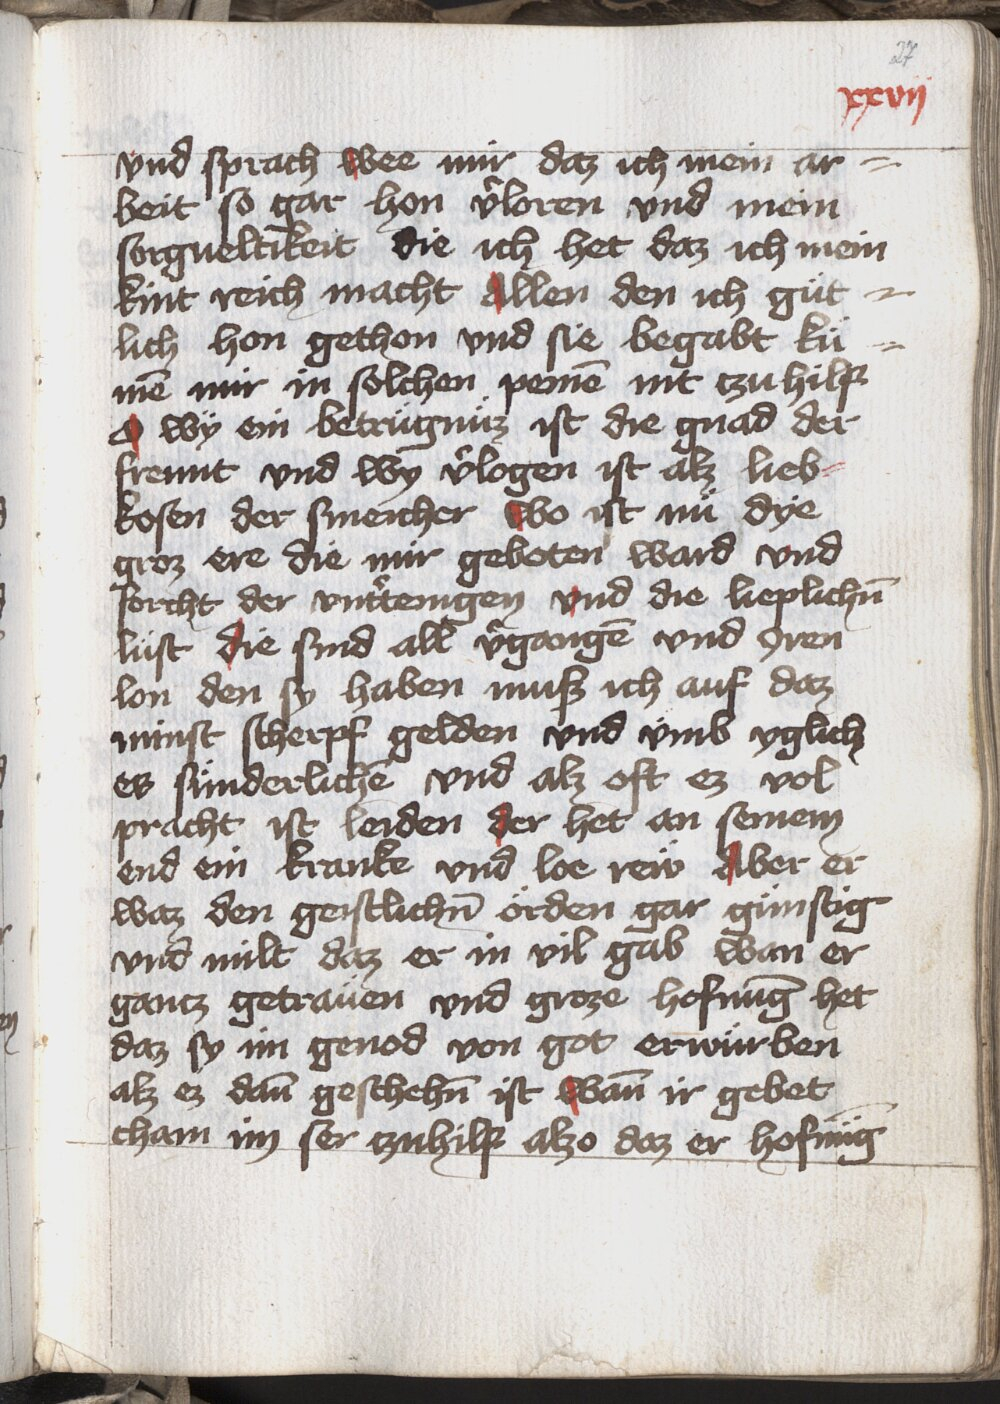 27
xxvii
vnd sprach wee mir daz ich mein ar=
beit so gar hon v̾loren vnd mein
sorgueltikeit die ich het daz ich mein
kint reich macht Allen den ich güt=
lich hon gethon vnd sie begabt kü=
mē mir in solchen peinē nit czu hilf
O wÿ ein betrügnüz ist die gnad der
freunt vnd wÿ v̾logen ist alz lieb=
kosen der smeicher wo ist nü dÿe
groz ere die mir geboten ward vnd
forcht der vnt̾tenigen vnd die lieplichn̄
lüst die sind all v̾gangē vnd Iren
lon den sy haben muß ich auf daz
minst scherpf gelden vnd vmb yglich
es sünderlichē vnd alz oft ez vol
pracht ist leiden der het an seinem
end ein kranke vnd loe rew Aber er
waz den geistlichn̄ örden gar günstig
vnd milt daz er in vil gab wan er
gancz getrauen vnd groze hofnūg het
daz sy im genod von got erwürben
alz ez dan̄ geschehn̄ ist wan̄ ir gebet
cham im ser czu hilf alzo daz er hofnūg